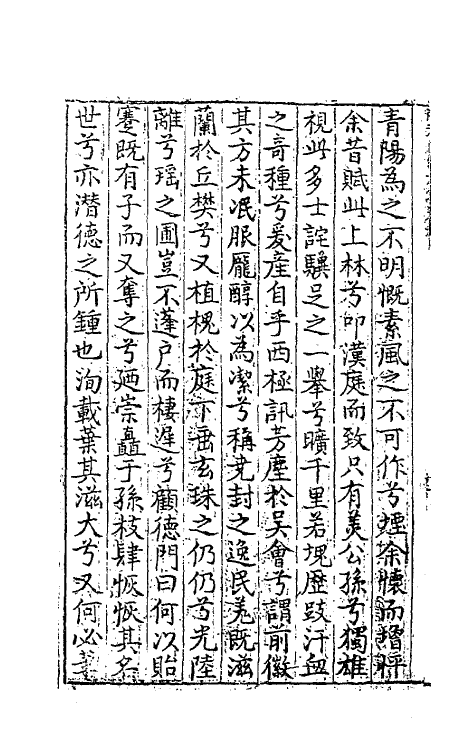 青陽為之不明慨素風之不可作兮堙余懷而增怦
余昔賦此上林兮叩漢庭而致只有美公孫兮獨雄
視此多士詫驥足之一舉兮曠千里若塊歷歧汗血
之奇種兮爰產自乎西極訊芳塵於吳會兮謂前徽
其方未泯服龐醇以為潔兮稱堯封之逸民羌既滋
蘭於丘樊兮又植槐於庭下畱玄珠之仍仍兮光陸
離兮瑶之圃豈不蓬户而棲遲兮顧德門曰何以貽
蹇既有子而又奪之兮廼崇矗于孫枝肆恢恢其名
世兮亦潛德之所鍾也洵載葉其滋大兮又何必